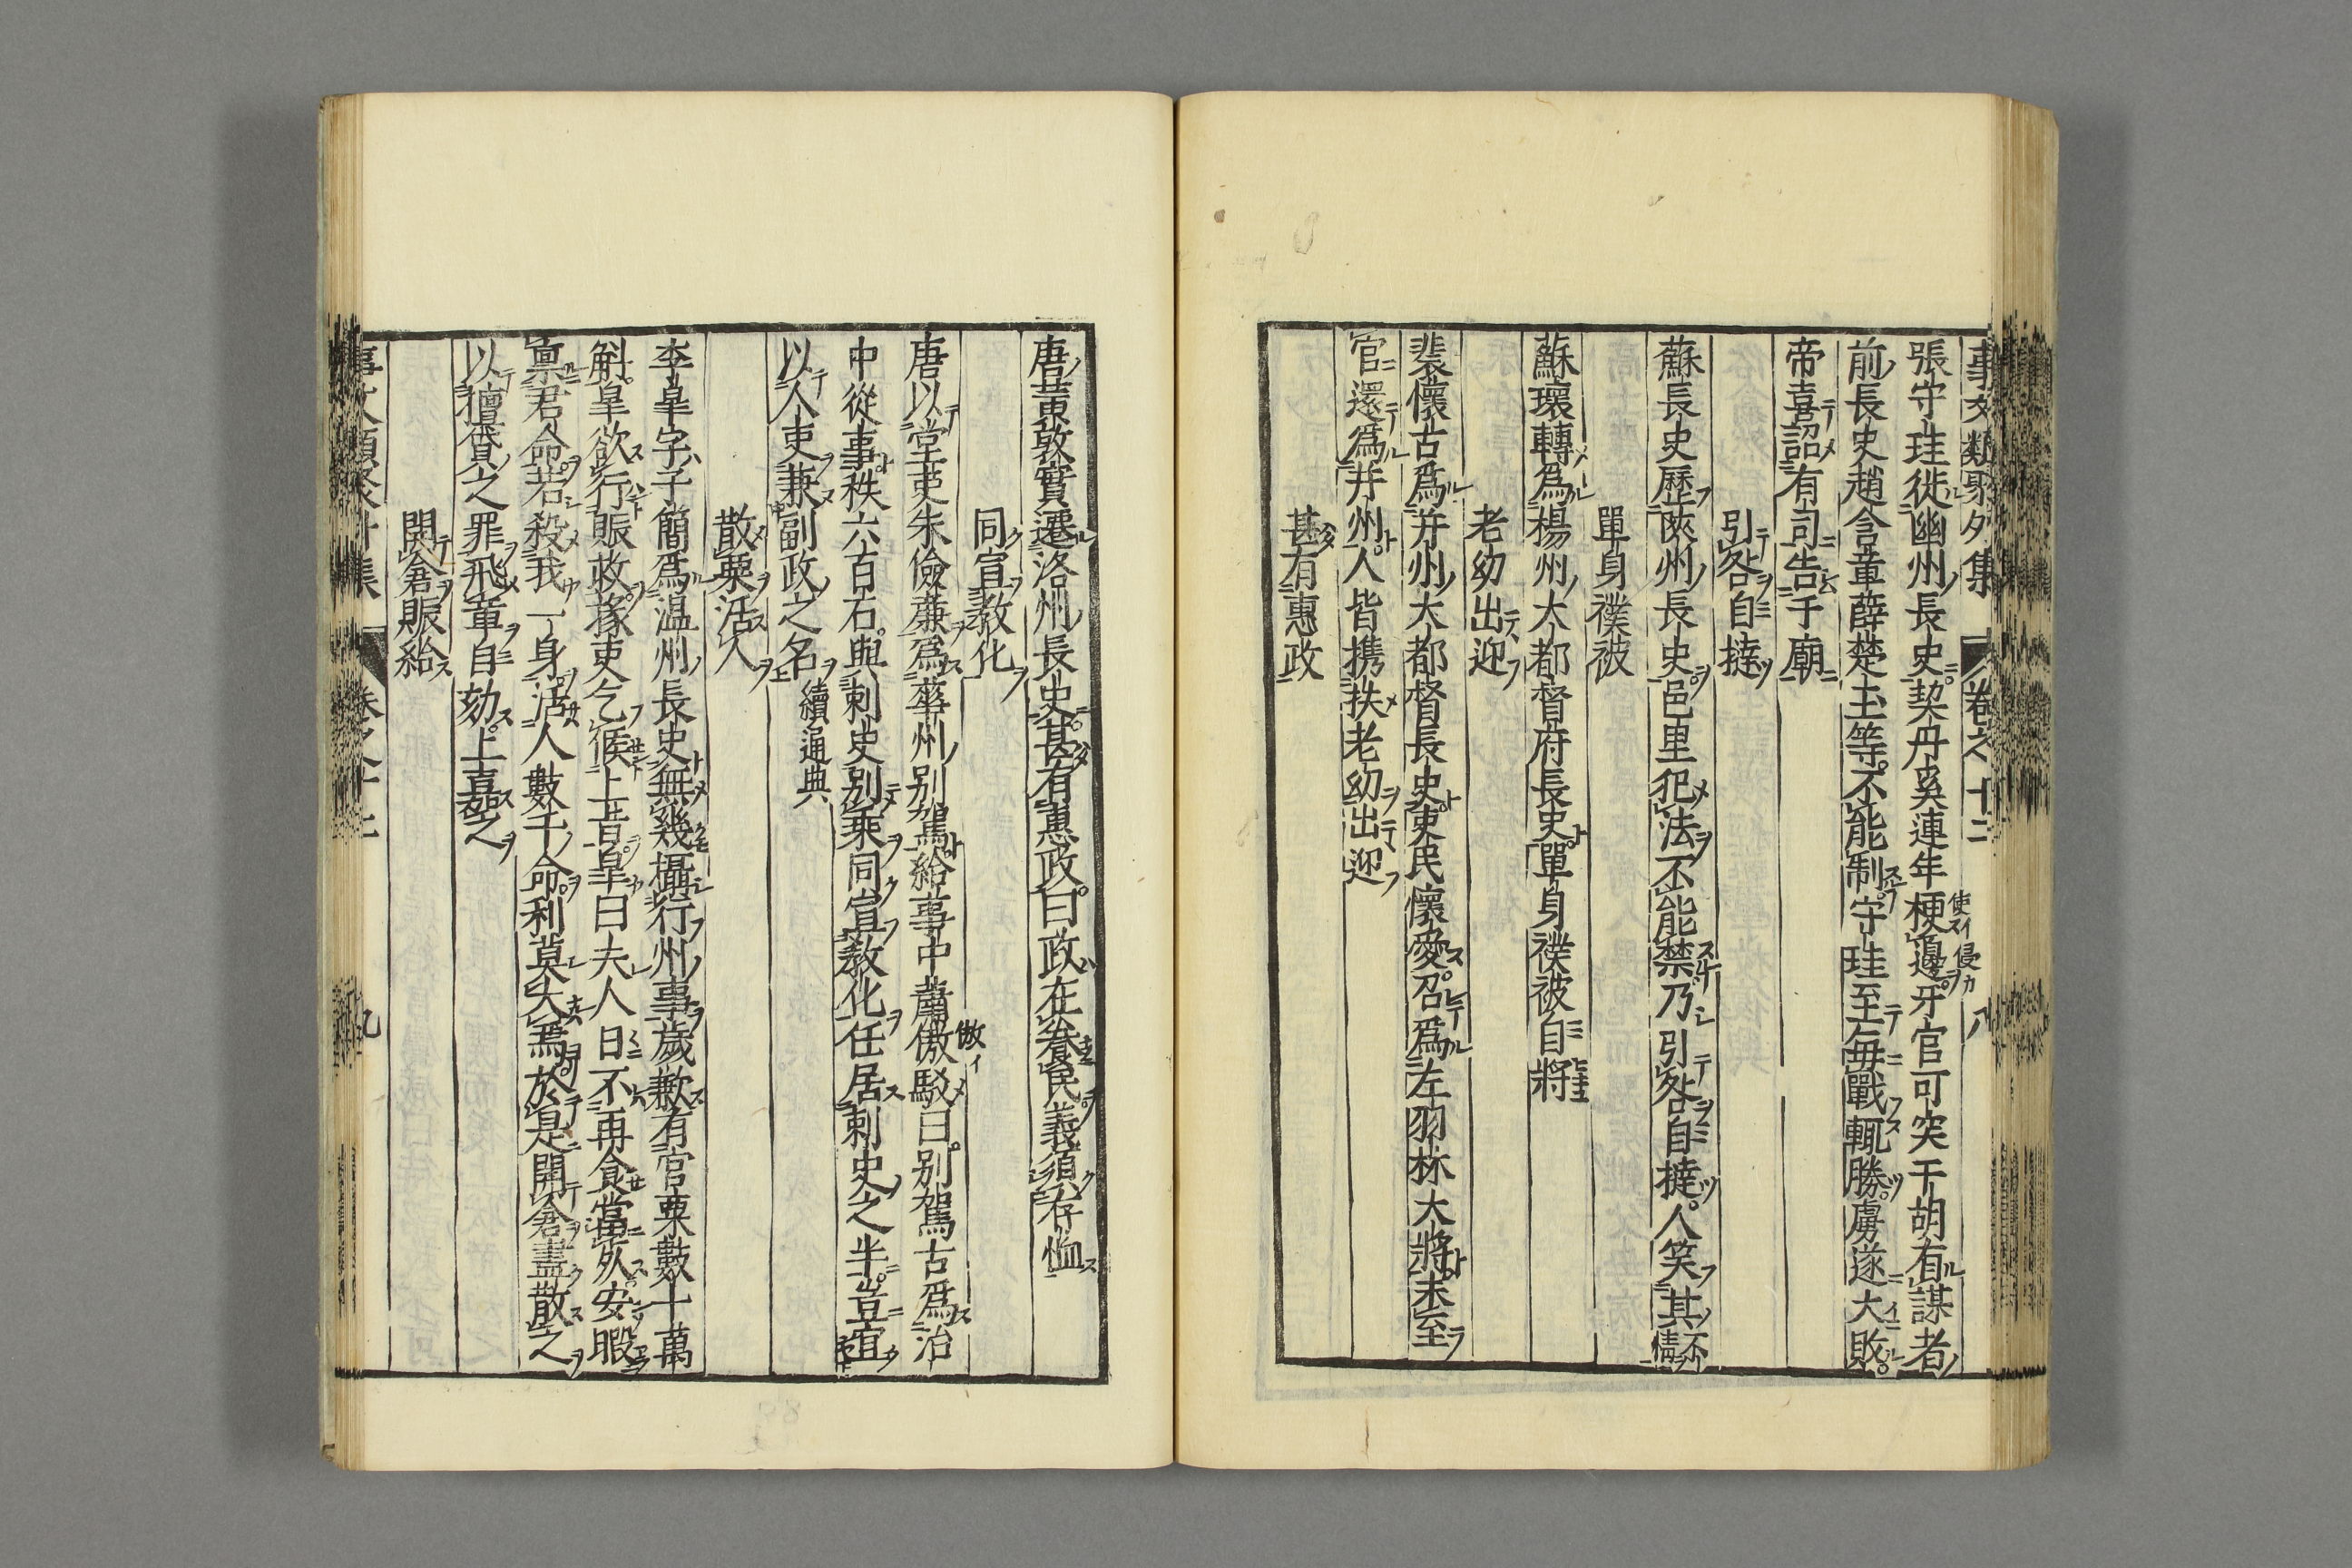 事文類聚外集 卷之十二 八
張守珪徙幽州長史契丹奚連年梗邊牙官可突干胡有謀者
前長史趙含章薛楚玉等不能制守珪至每戰輒勝虜遂大敗
帝喜詔有司告于廟
引咎自撻
蘇長史歷陝州長史邑里犯法不能禁乃引咎自撻人笑其不情
單身襆被
蘇瓌轉爲楊州大都督府長史單身襆被自將
老幼出迎
裴懷古爲并州大都督長史吏民懷愛召爲左羽林大將未至
官還爲并州人皆携扶老幼出迎
甚有惠政
唐董敦實遷洛州長史甚有惠政曰政在養民義須存恤
同宣教化
唐以堂吏朱儉兼爲華州別駕給事中蕭倣駁曰別駕古爲治
中從事秩六百石與刺史別乘同宣教化任居刺史之半豈宜
以人吏兼副政之名 續通典
散粟活人
李皐字子簡爲温州長史無幾攝行州事歲歉有官粟數十萬
斛皐欲行賑救掾吏乞候上旨皐曰夫人日不再食當死安暇
禀君命若殺我一身活人數千命利莫大焉於是開倉盡散之
以擅貸之罪飛章自劾上喜恕之
開倉賑給
卷之十二 九